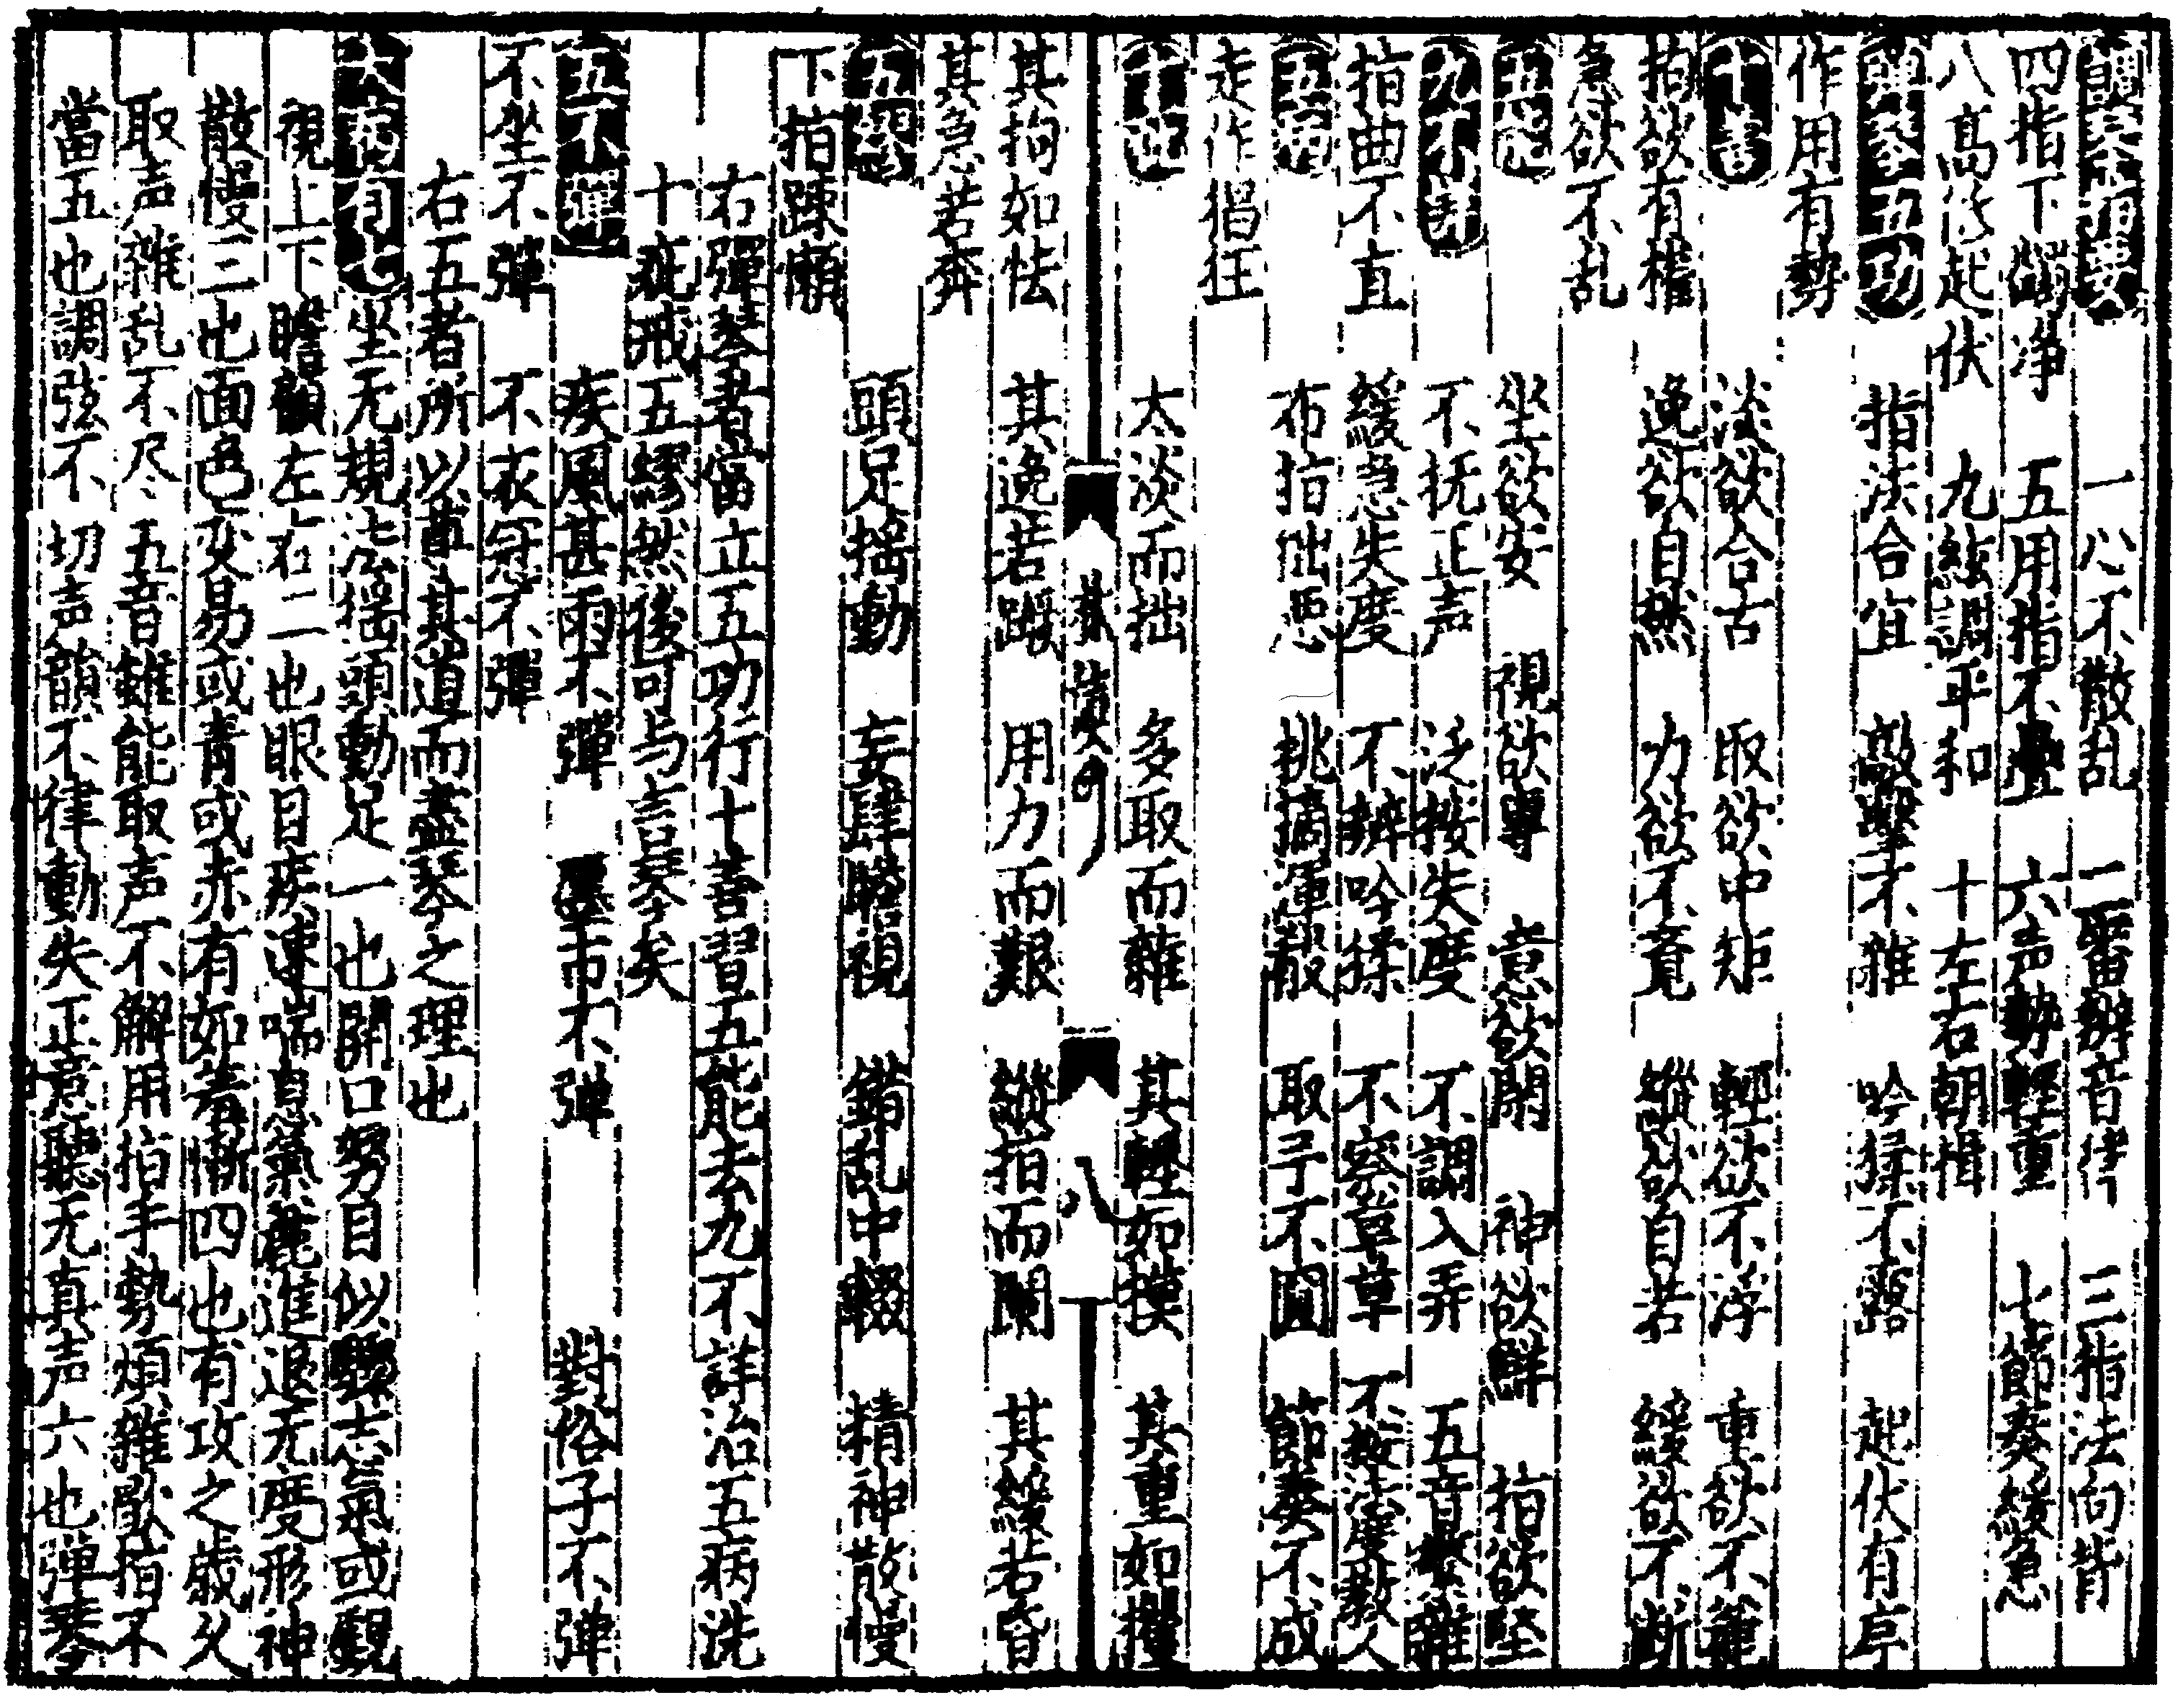 一公不散乱 二畨辨音律 三指法向背
四指下蠲净 五用指不疊 六声勢輕重 七節奏緩急
八髙低起伏 九絃調平和 十左右朝揖
彈琴五功 指法合宜 敲擊不雜 吟猱不露 起伏有序
作用有勢
十善 淡欲合古 取欲中矩 輕欲不浮 重欲不麄
拘欲有權 逸欲自然 力欲不覔 縱欲自若 緩欲不断
急欲不乱
五能 坐欲安 視欲專 意欲閑 神欲鮮 指欲堅
九不詳 不抚正声 泛按失度 不調入弄 五音繁雜
指曲不直 緩急失度 不辨吟猱 不察草草 不按法度教人
五病 布指拙惡 挑摘渾散 取予不圓 節奏不成
走作猖狂
十疵 太淡而拙 多取而雜 其輕如摸 其重如攫
琴 八
其拘如怯 其逸若蹶 用力而艱 縱指而闌 其緩若昏
其急若奔
五繆 頭足摇動 妄肆瞻視 錯乱中輟 精神散慢
下指踈懶
右彈琴者當立五功行十善習五能去九不詳治五病洗
十疵戒五繆然後可与言琴矣
五不彈 疾風甚雨不彈 𫝑市不弹 對俗子不弹
不坐不彈 不衣冠不彈
右五者所以尊其道而盡琴之理也
坐无規法揺頭動足一也開口努目似驟志氣或觀
視上下瞻顧左右二也眼目疾速喘息氣麄進退无度形神
散慢三也面色变易或青或赤有如羞慚四也有攻之歲久
取声雜乱不尽五音雖能取声不解用指手勢煩雜歇指不
當五也調弦不切声韻不律動失正意聽无真声六也弹琴